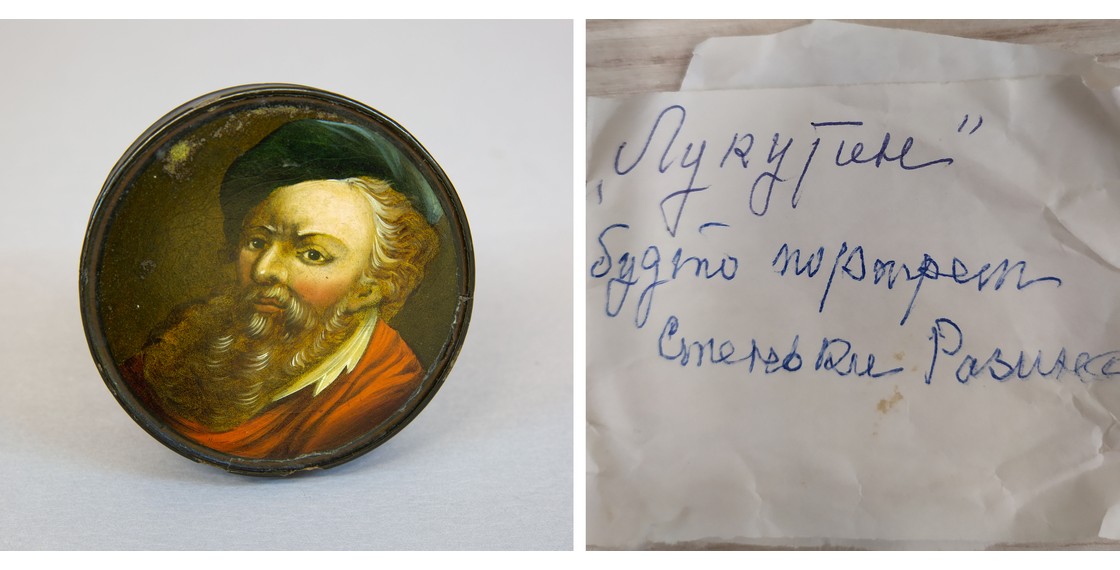 „Лукутин"
будто портрет
Стеньки Разина